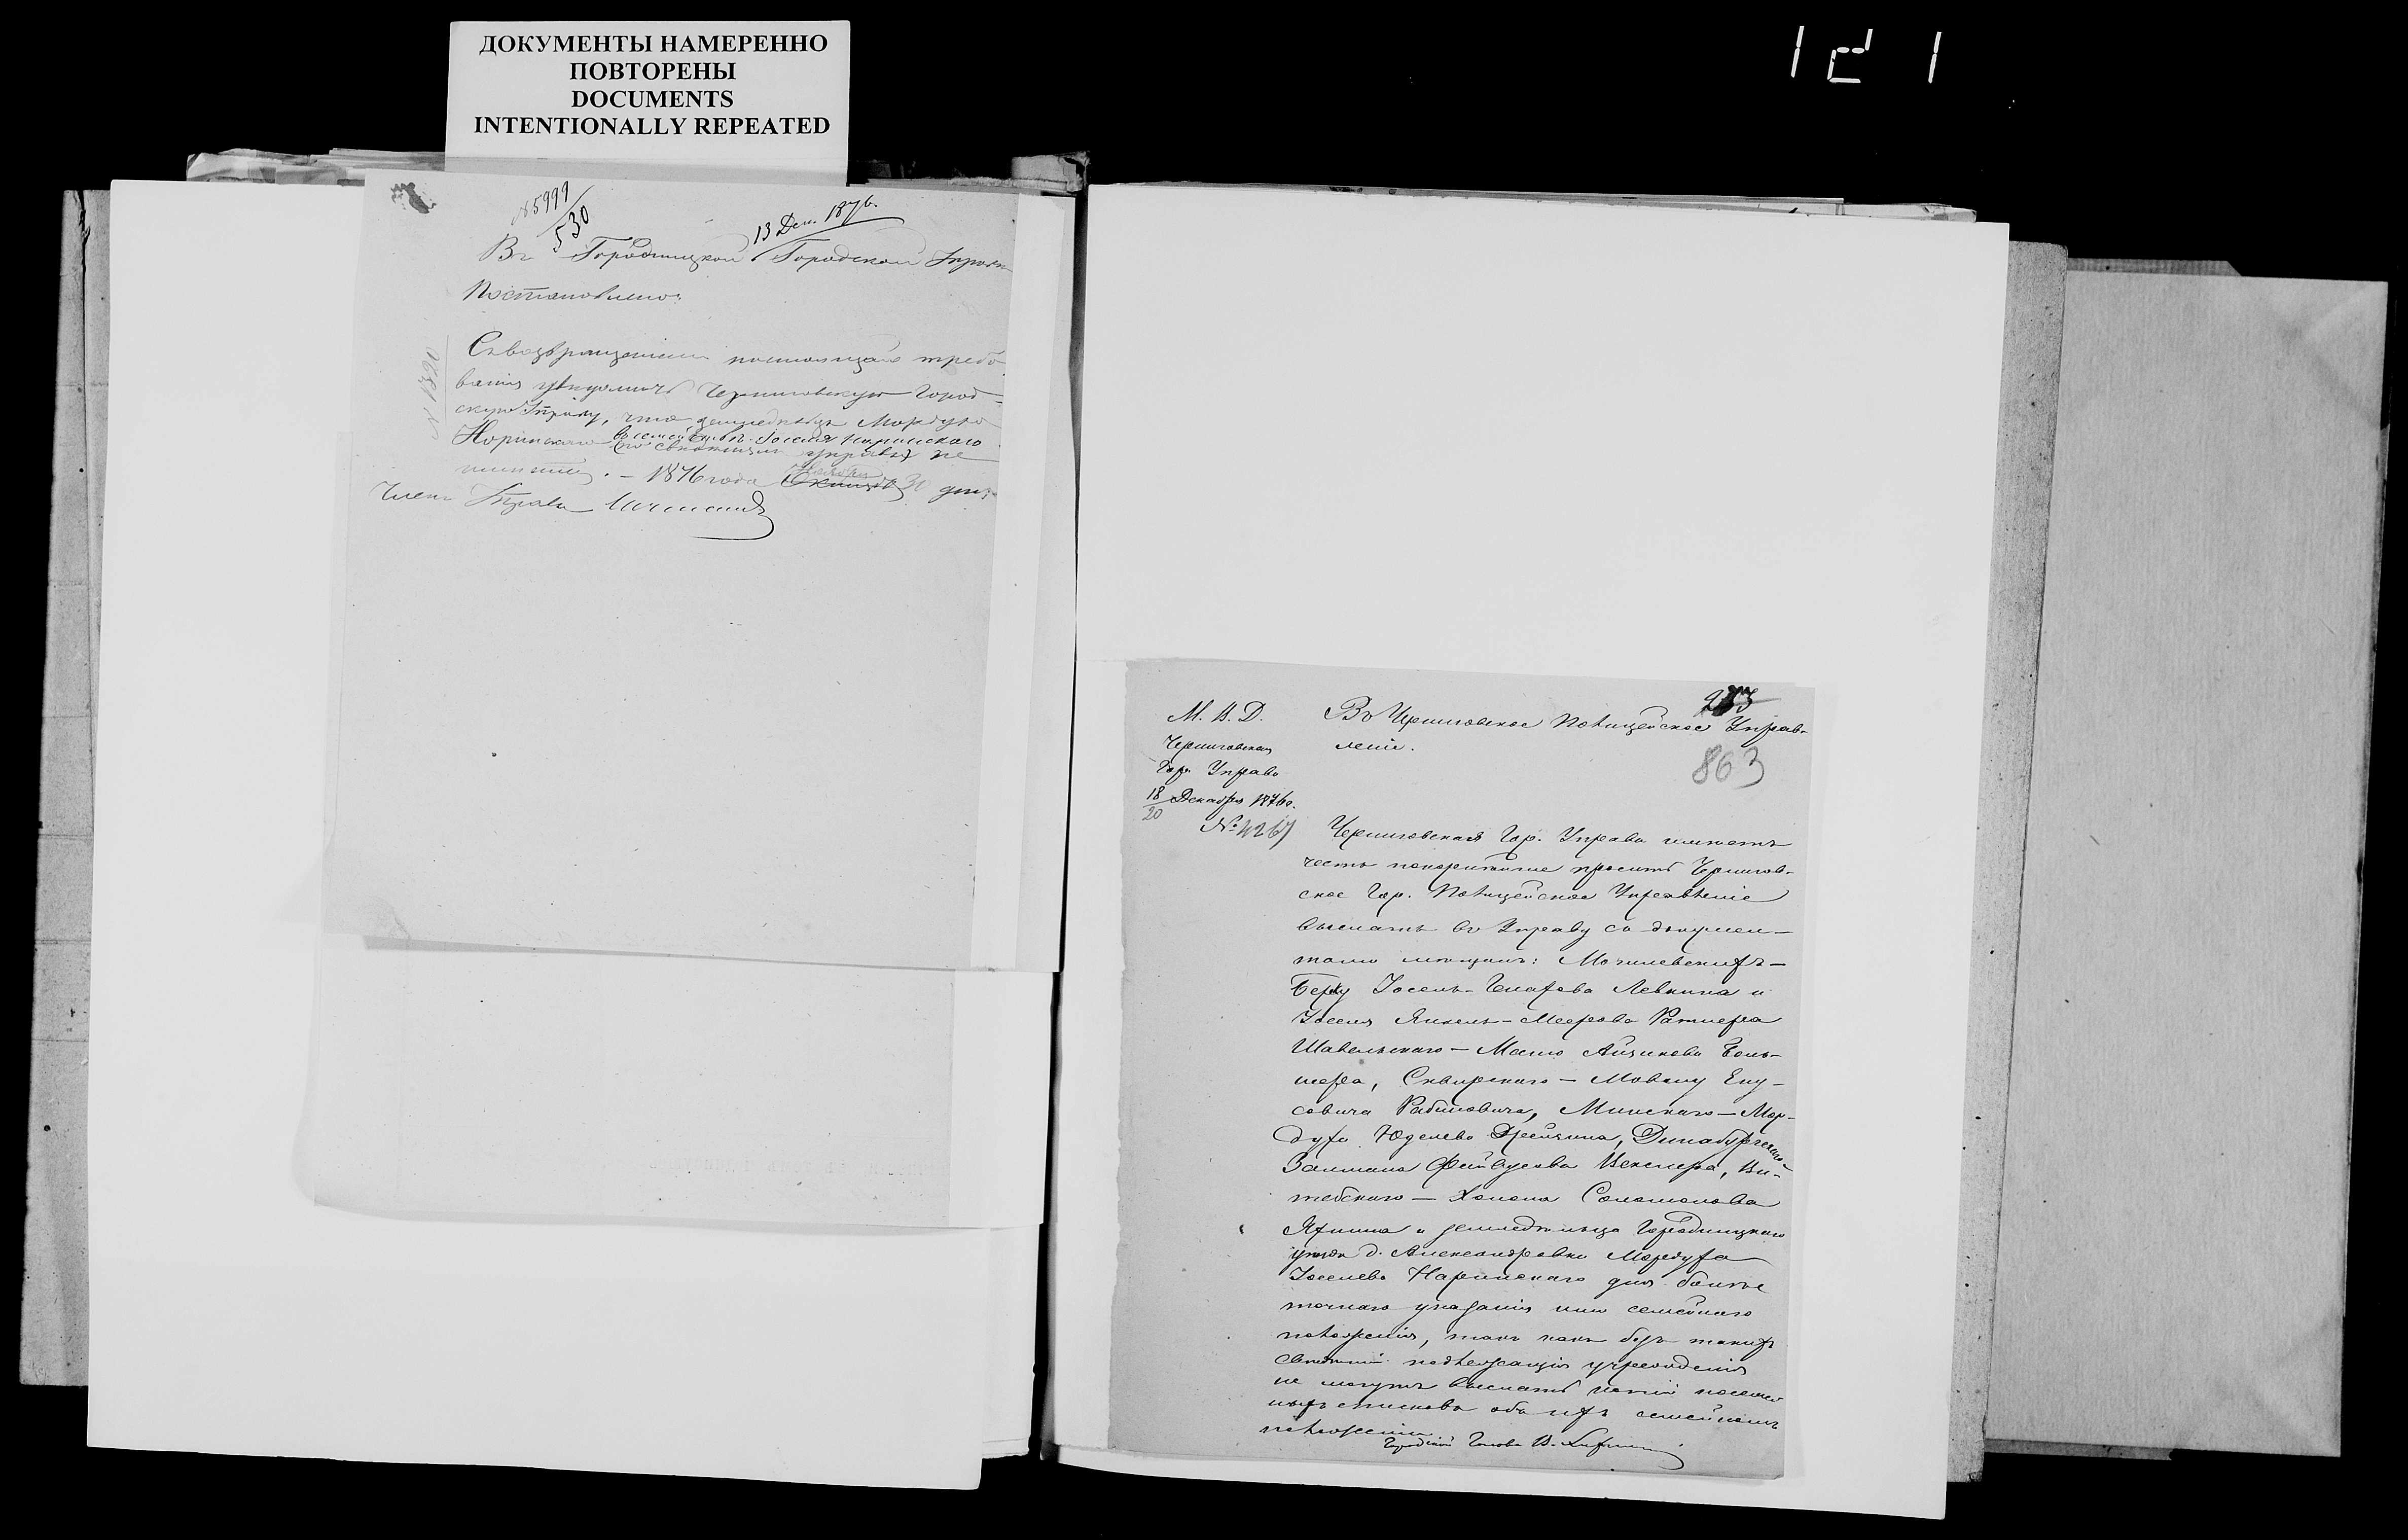 ДОКУМЕНТЫ НАМЕРЕННО
ПОВТОРЕНЫ
DOCUMENTS
INTENTIONALLY REPEATED
121
№ 5999
530
13 Дек. 1876.
Въ Городницкой Городской Управѣ
Постановлено:
№ 1320
требо-
ванія увѣдомить Черниговскую Город-
скую Управу, что земледѣльца Мордуха
Норинскаго въ семействѣ Іоселя Норинскаго
по свѣдѣніямъ управы не
1876 года 30 дня
Членъ Управы
М. В. Д.
Черниговская
Гор. Управа
18 Декабря 1876 г.
20
№ 4267
Въ Черниговское Полицейское Управ-
леніе.
863
Черниговская Гор. Управа имѣетъ
честь покорнѣйше просить Чернигов-
ское Гор. Полицейское Управленіе
выслать въ Управу съ докумен-
тами мѣщанъ: Могилевскихъ —
Берку Іосель- Левкина и
Іоселя Янкель-Меерова Ратнера
Шавельскаго — Айзикова Боль-
Сквирскаго — Мовшу
Рабиновича, Минскаго — Мор-
духа Юделева Динабургскаго
Залмана Фейвусова Векслера, Ви-
тебскаго — Хонона Соломонова
и земледѣльца Городницкаго
уѣзда д. Александровки Мордуха
Іоселева Наринскаго для болѣе
точнаго указанія ими семейнаго
положенія, такъ какъ безъ такихъ
свѣдѣній подлежащія учрежденія
не могутъ выслать копій посемей-
ныхъ списковъ объ ихъ семейномъ
положеніи.
Городской Голова В.